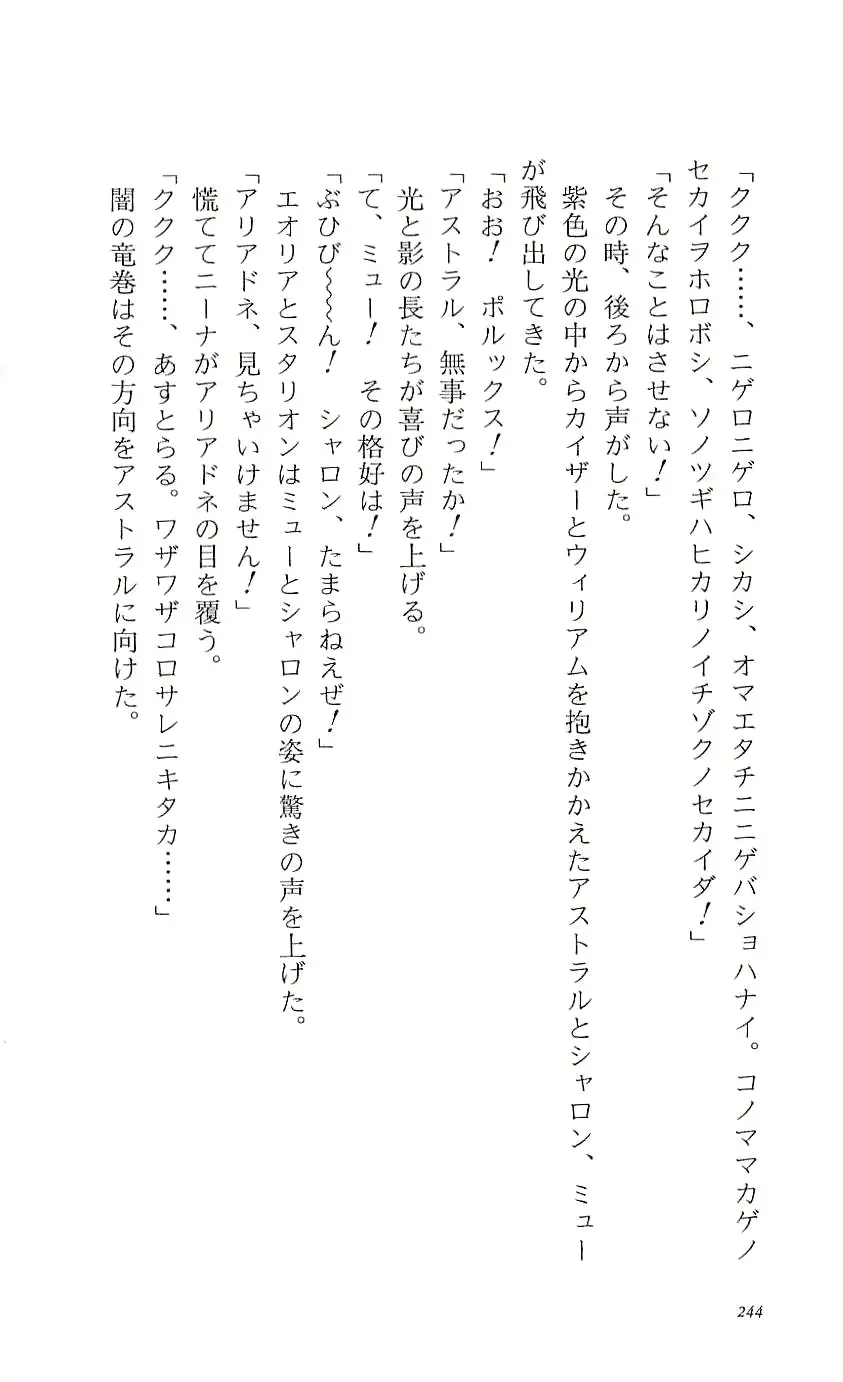 「ククク……、ニゲロニゲロ、シカシ、オマエタチニニゲバショハナイ。コノママカゲノ
セカイヲホロボシ、ソノツギハヒカリノイチゾクノセカイダ！」
「そんなことはさせない！」
その時、後ろから声がした。
紫色の光の中からカイザーとウィリアムを抱きかかえたアストラルとシャロン、ミュー
が飛び出してきた。
「おお！　ポルックス！」
「アストラル、無事だったか！」
光と影の長たちが喜びの声を上げる。
「て、ミュー！　その格好は！」
「ぶひび〜〜〜ん！　シャロン、たまらねえぜ！」
エオリアとスタリオンはミューとシャロンの姿に驚きの声を上げた。
「アリアドネ、見ちゃいけません！」
慌ててニーナがアリアドネの目を覆う。
「ククク……、あすとらる。ワザワザコロサレニキタカ……」
闇の竜巻はその方向をアストラルに向けた。
244